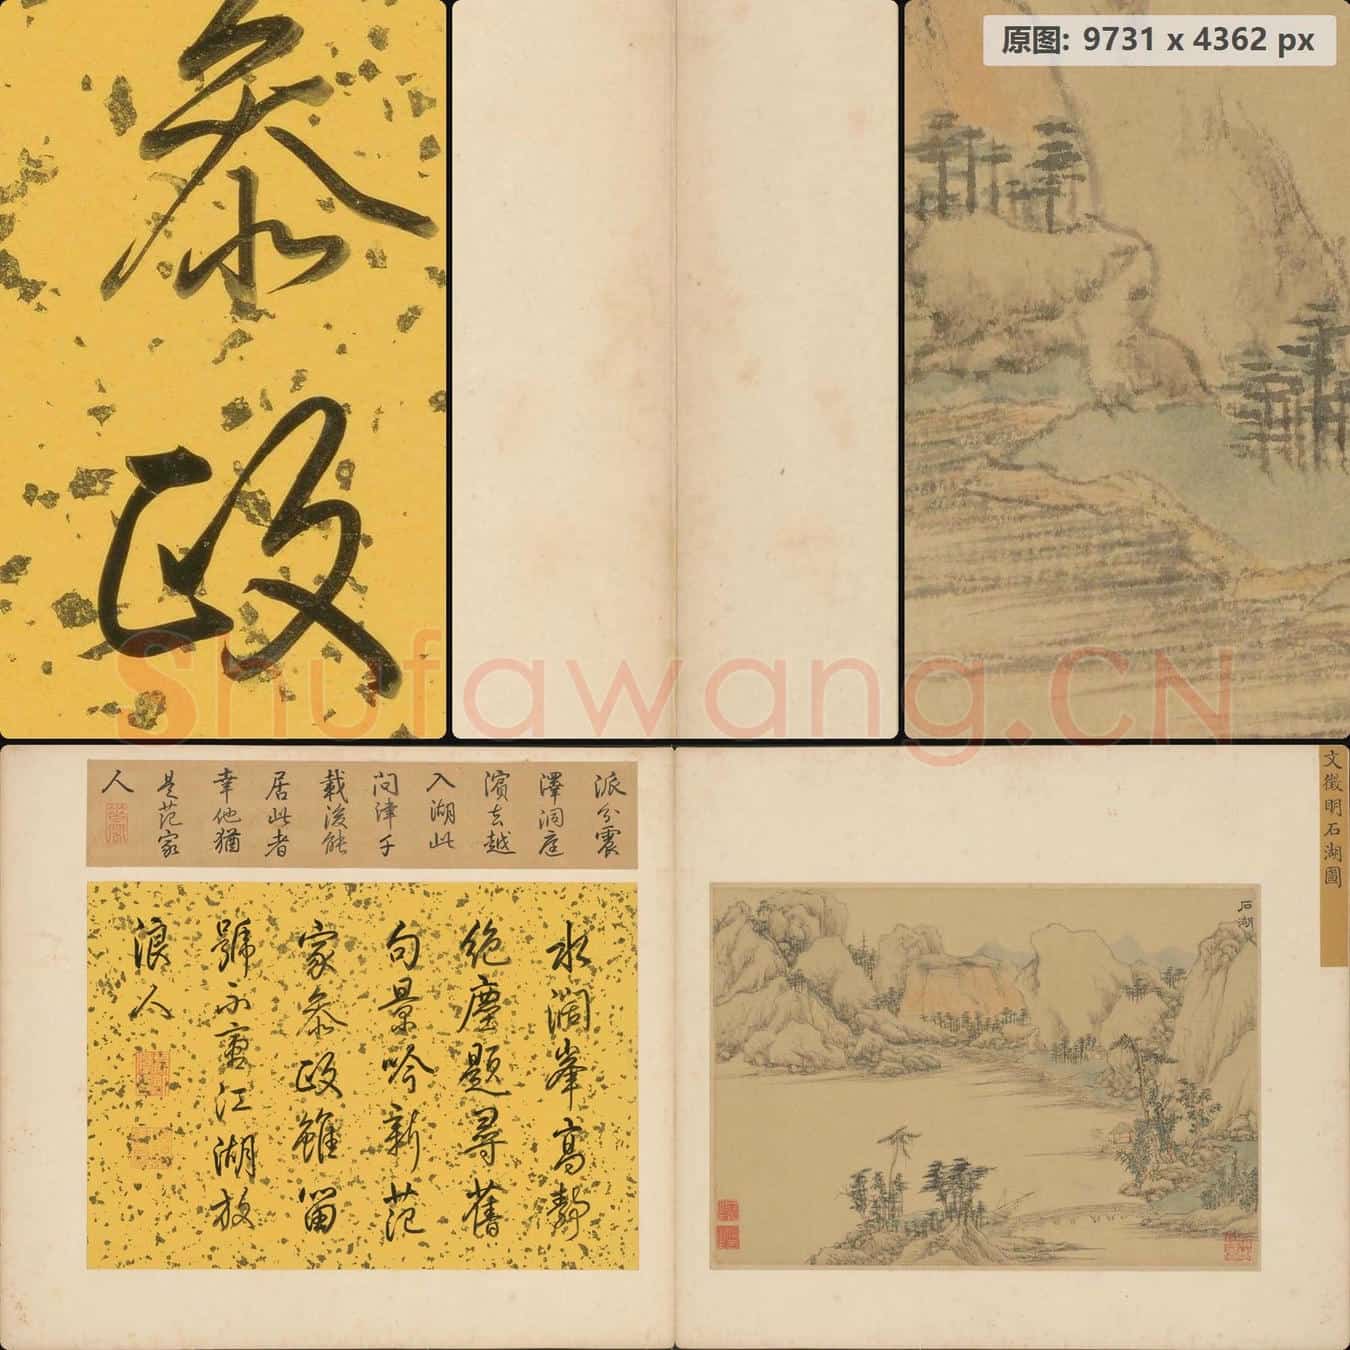 原图: 9731 x 4362 px
叅
政
Shufawang.CN
文徵明石湖圖
石湖
派分震
澤洞庭
濱去越
入湖此
问津千
載後能
居此者
幸他猶
是范家
人
水闊峯高静
絶塵題尋舊
句景吟新范
家叅政雖留
號不亶江湖放
浪人